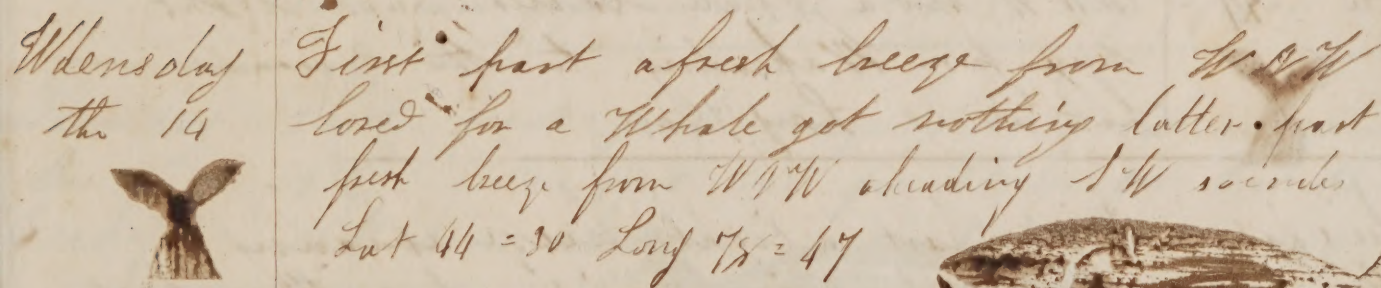 Wdensday First part a fresh breeze from W N W
the 14 lored for a Whale got nothing latter part
fresh breeze from W N W aheading S W
Lat 44 = 30 Long 78 = 47